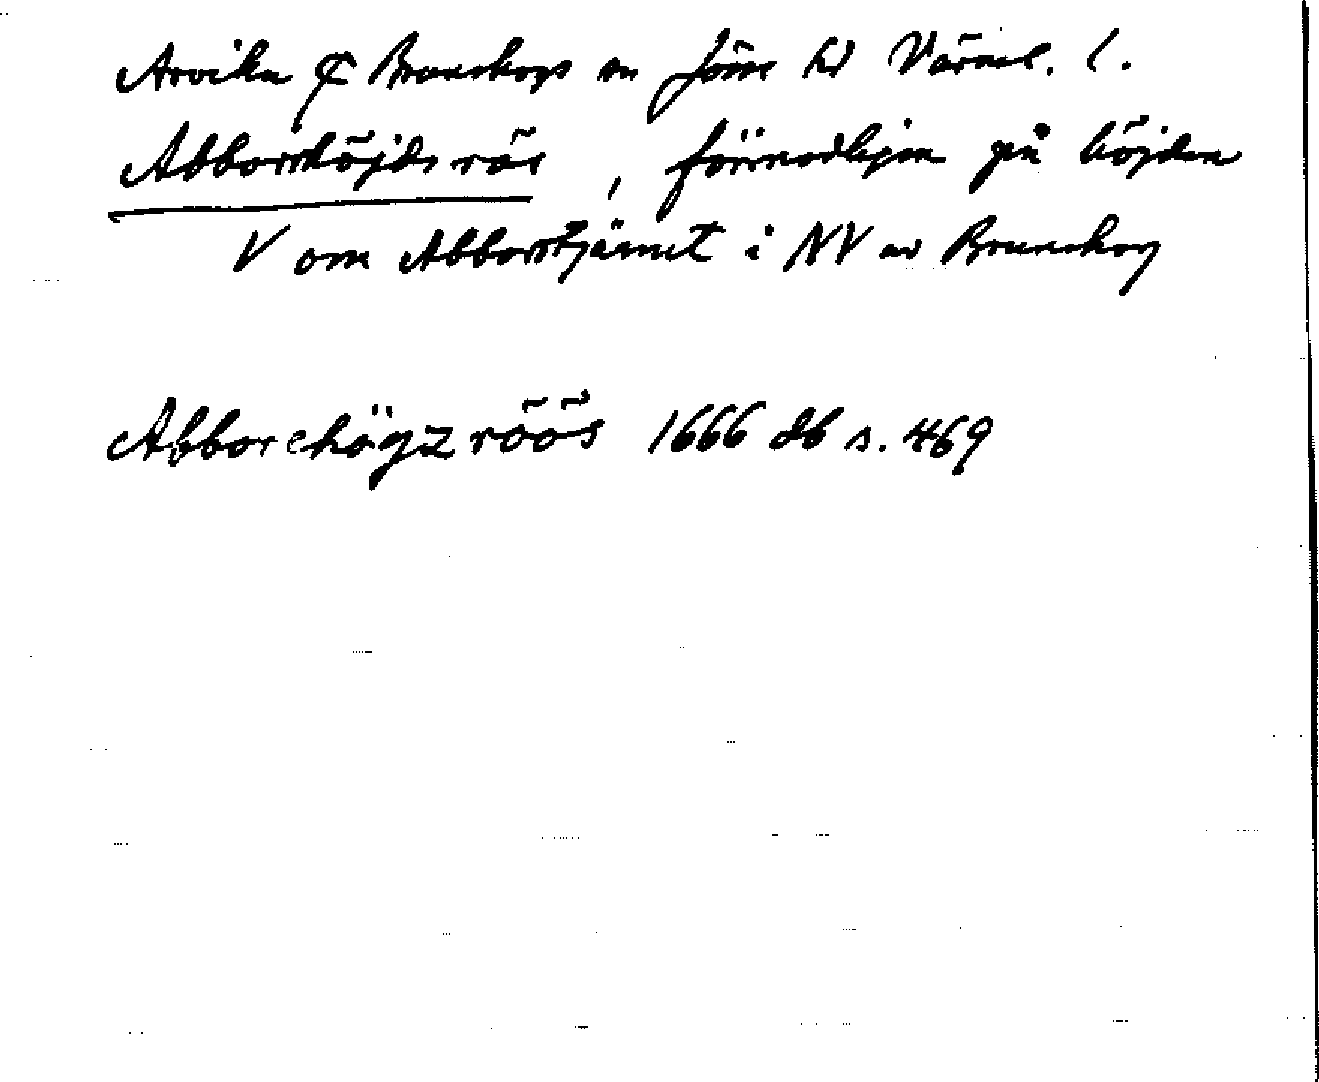 Arvika & Brunskogs sn Jösse hd Värml. l.
Abborrhöjds rös, förmodligen på höjden
V om Abborrtjärnet i NV av Brunskog
Abborehögz röös 1666 db s. 469